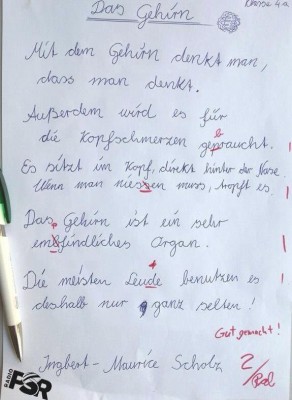 Klasse 4a
Das Gehirn
Mit dem Gehirn denkt man,
dass man denkt.
Außerdem wird es für
die Kopfschmerzen gepraucht.
b
Es sitzt im Kopf, direkt hinter der Nase.
Wenn man niessen muss, tropft es.
Das Gehirn ist ein sehr
p
embfindliches Organ.
t
Die meisten Leude benutzen es
deshalb nur ganz selten!
Gut gemacht!
Ingbert-Maurice Scholz
2/
RADIO
FSR